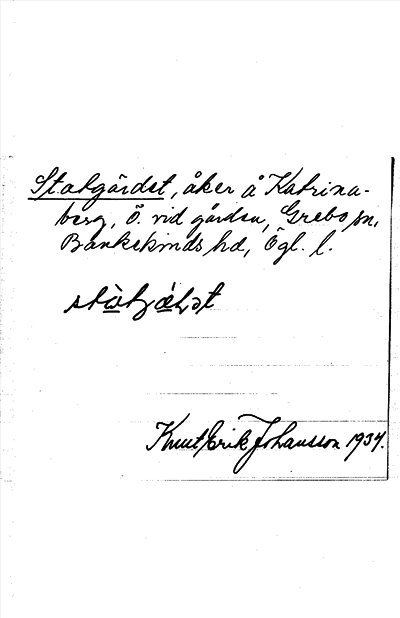 Statgärdet, åker å Katrina-
berg, ö. vid gården, Grebo sn,
Bankekinds hd, Ögl. l.
Knut Erik Johansson 1934.